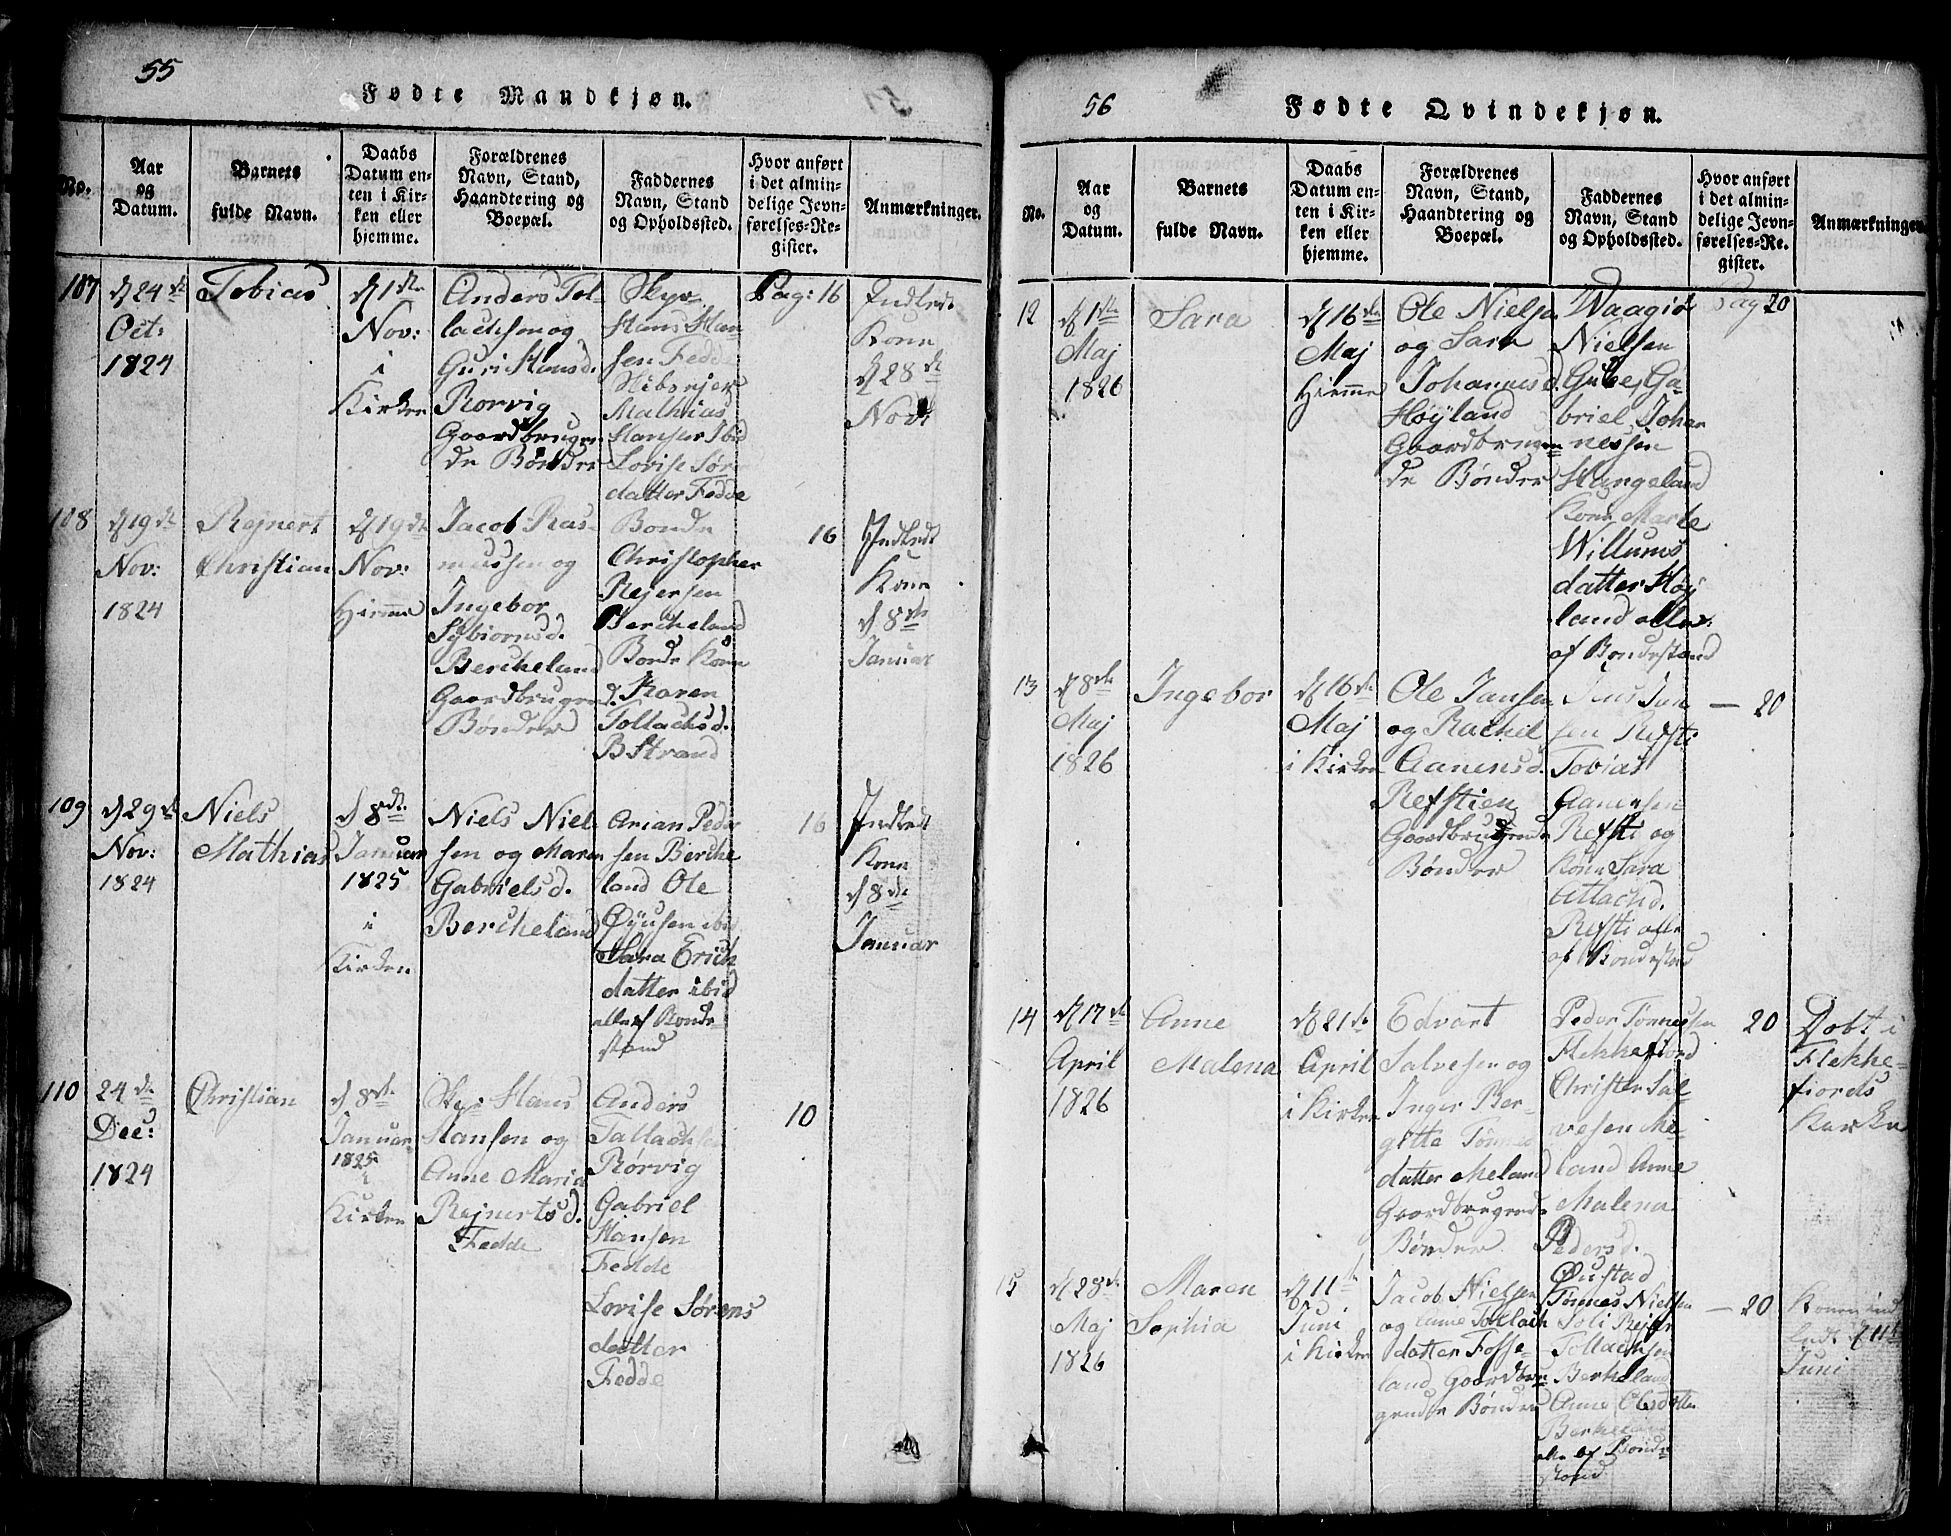 55
Fødte Mandkjøn.
No.
Aar
og
Datum.
Barnets
fulde Navn.
Daabs
Datum en-
ten i Kir-
ken eller
hjemme.
Forældrenes
Navn, Stand,
Haandtering og
Boepæl.
Faddernes
Navn, Stand
og Opholdssted.
Hvor anført
i det almin-
delige Jevn-
førelses-Re-
gister.
Anmærkninger.
107
d 24 de
Oct:
1824
Tobias
d 1 de
Nov:
i
Kirken
Anders Tol-
lachsen og
Guri Hansd.
Rørvig
Gaardbrugen
de Bønder
Hans Han
sen Fedde
Mathias
Hansen Ibid
Lovise Sør
datter Fedde
Pag: 16
Indledt
Kone
d 28 de
Nov:
108
d 19 de
Nov:
1824
Rejnert
Christian
d 19 de
Nov:
Hiemme
Jacob Ras-
mussen og
Ingebor
Berckeland
Gaardbrugend.
Bønder
Bonde
Christopher
Rejersen
Berckeland
Bonde Kone
Karen
Tollachsd.
Strand
16
Indledt
Kone
d 8 de
Januar
109
d 29 de
Nov:
1824
Niels
Mathias
d 8 de
Januar
1825
i
Kirken
Niels Niel
sen og Maren
Gabrielsd.
Berckeland
Arian Peder
sen Bercke
land Ole
Øyusen ibid
Sara Erich
datter ibid
alle af Bonde-
stand
16
Indledt
Kone
d 8 de
Januar
110
24 de
Dec:
1824
Christian
d 8 de
Januar
1825
i
Kirken
Hans
Hansen og
Anne Maria
Rejnertsd.
Fedde
Anders
Tallachsen
Rørvig
Gabriel
Hansen
Fedde
Lovise Sørens
datter
Fedde
10
56
Fødte Qvindekjøn.
No.
Aar
og
Datum.
Barnets
fulde Navn.
Daabs
Datum en-
ten i Kir-
ken eller
hjemme.
Forældrenes
Navn, Stand,
Haandtering og
Boepæl.
Faddernes
Navn, Stand
og Opholdssted.
Hvor anført
i det almin-
delige Jevn-
førelses-Re-
gister.
Anmærkninger.
12
d 1 de
Maj
1826
Sara
d 16 de
Maj
Hiemme
Ole Nielsen
og Sara
Johannesd.
Høyland
Gaardbrugen
de Bønder
Waagiø
Nielsen
Ga-
briel Johan
nessen
Stangeland
Kone Marte
Willums
datter Høj
land alle
af Bondestand
Pag 20
13
d 8 de
Maj
1826
Ingebor
d 16 de
Maj
i Kirken
Ole Jansen
og Rachel
Aanensd.
Refstien
Gaardbrugende
Bønder
Jens Jan
sen Refsti
Tobias
Aanensen
Refsti og
Kone Sara
Atlachd.
Refsti alle
af Bondestand
— 20
14
d 17 de
April
1826
Anne
Malena
d 21 de
April
i Kirken
Edvart
Salvesen og
Inger Ber-
gitte Tønnes
datter Meland
Gaardbrugende
Bønder
Peder Tønnessen
Flekkefiord
Christen Sal
vesen Me-
land Anne
Malena
Pedersd.
Øustad
20
Døbt i
Flekke-
fiords
Kirke
15
d 28 de
Maj
1826
Maren
Sophia
d 11 te
Juni
i Kirken
Jacob Nielsen
og Anne Tollach
datter Fosse-
land Gaardbru-
gende Bønder
Tønnes Nielsen
Rejer
Tollachsen
Berkeland
Anne Olesdatter
Berkeland
alle af Bonde
stand
— 20
Konen ind
ledt d 11 te
Juni